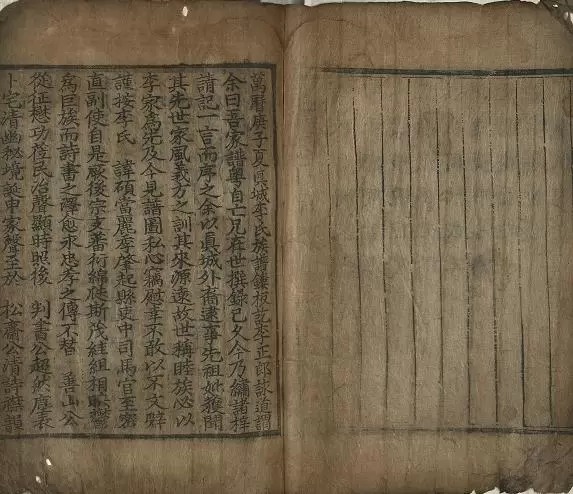 萬曆庚子夏眞城李氏族譜鏤板訖李正郎詠道謂
余曰吾家譜粤自亡兄在世撰錄已久今乃繡諸梓
請記一言而序之余以眞城外裔逮事先祖妣獲聞
其先世家風義方之訓其來源遠故世稱睦族必以
李家爲先及今見譜圖私心竊慰幸不敢以不文辭
謹按李氏 諱碩當麗季肇起縣吏中司馬官至密
直副使自是厥後宗支蕃衍綿斯茂組相聯欝
爲巨族而詩書之澤愈永忠孝之傳不替 善山公
從征懋功莅民治聲顯時照後 判書公超然塵表
卜宅清幽秘境誕申家聲至於 松齋公清詩韻